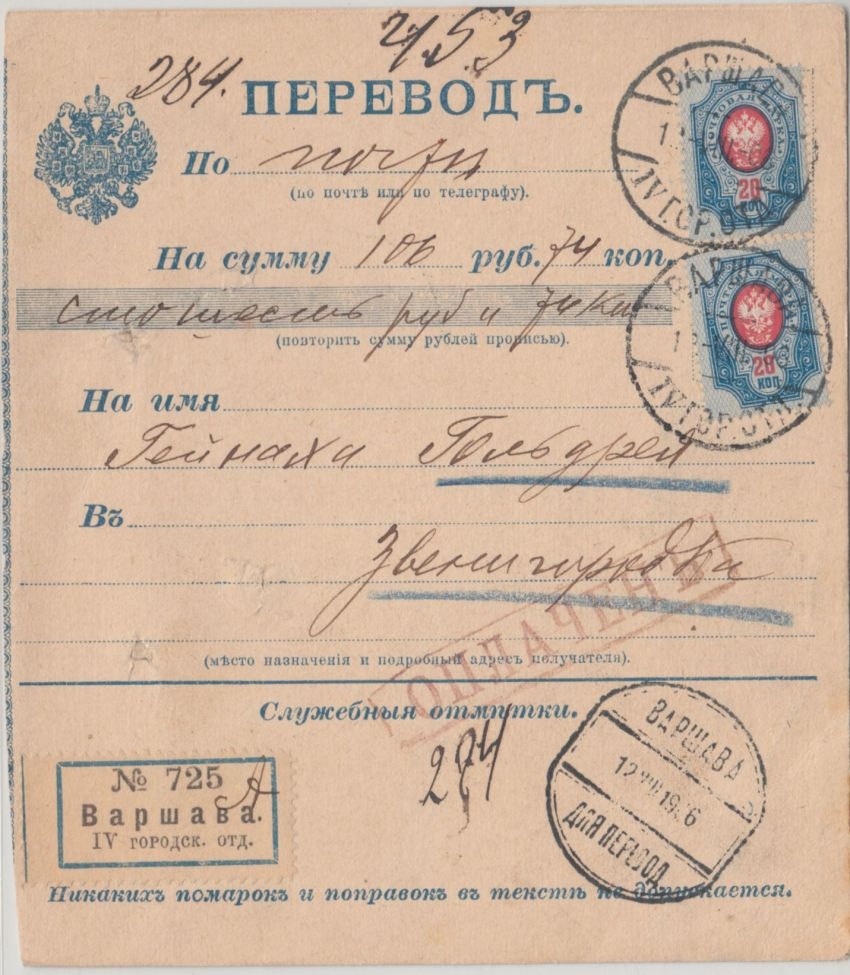 453
284.
ПЕРЕВОДЪ.
По почти
(по почтѣ или по телеграфу).
На сумму 106 руб. 74 коп.
сто шесть руб и 74 коп
(повторить сумму рублей прописью).
На имя
Гейнаха Гольдфел
Въ
Звенигородка
ОПЛАЧЕНЪ
(мѣсто назначенія и подробный адресъ получателя).
Служебныя отмѣтки.
284
№ 725
Варшава.
IV городск. отд.
Никакихъ помарокъ и поправокъ въ текстѣ не допускается.
ВАРШАВА
IV ГОР. ОТД.
ПОЧТОВАЯ МАРКА
20
КОП
ВАРШАВА
IV ГОР. ОТД.
20
КОП.
ВАРШАВА
12 VIII 1906
ДЛЯ ПЕРЕВОД